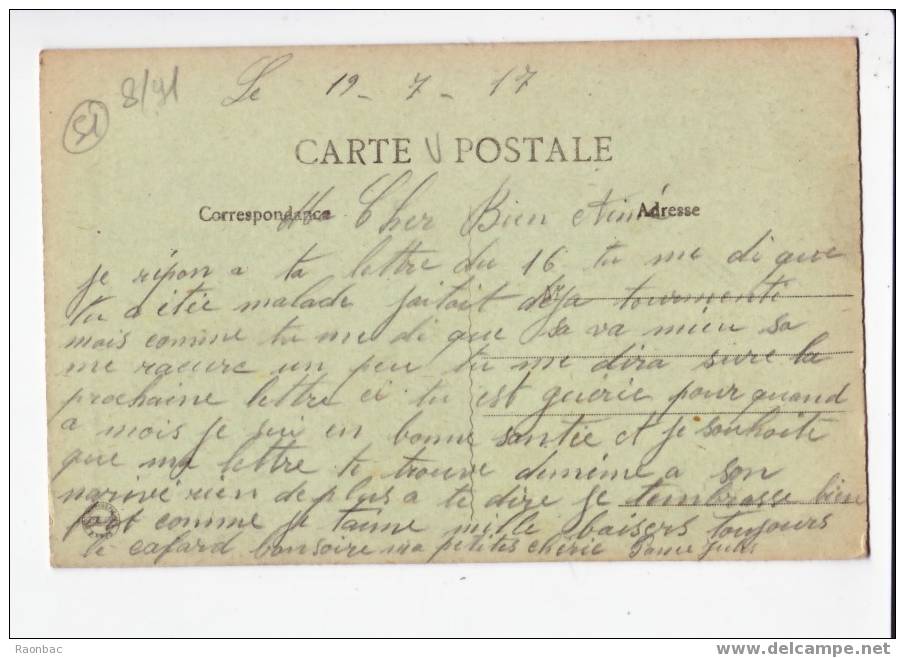 8/91
51
Le 19 - 7 - 17
CARTE POSTALE
Correspondance
Adresse
Cher Bien Aimé
je répon a ta lettre du 16 tu me di que
tu a étée malade j'aitait déja tourmenté
mais comme tu me di que sa va mieu sa
me racure un peu tu me dira sure la
prochaine lettre ci tu est guérie pour quand
a mois je sui en bonne santée et je souhaite
que ma lettre te trouve dememe a son
narivé rien de plus a te dire je tembrasse bien
fort comme je taime mille baisers toujours
le cafard bonsoire ma petites chérie
Raonbac
www.delcampe.net